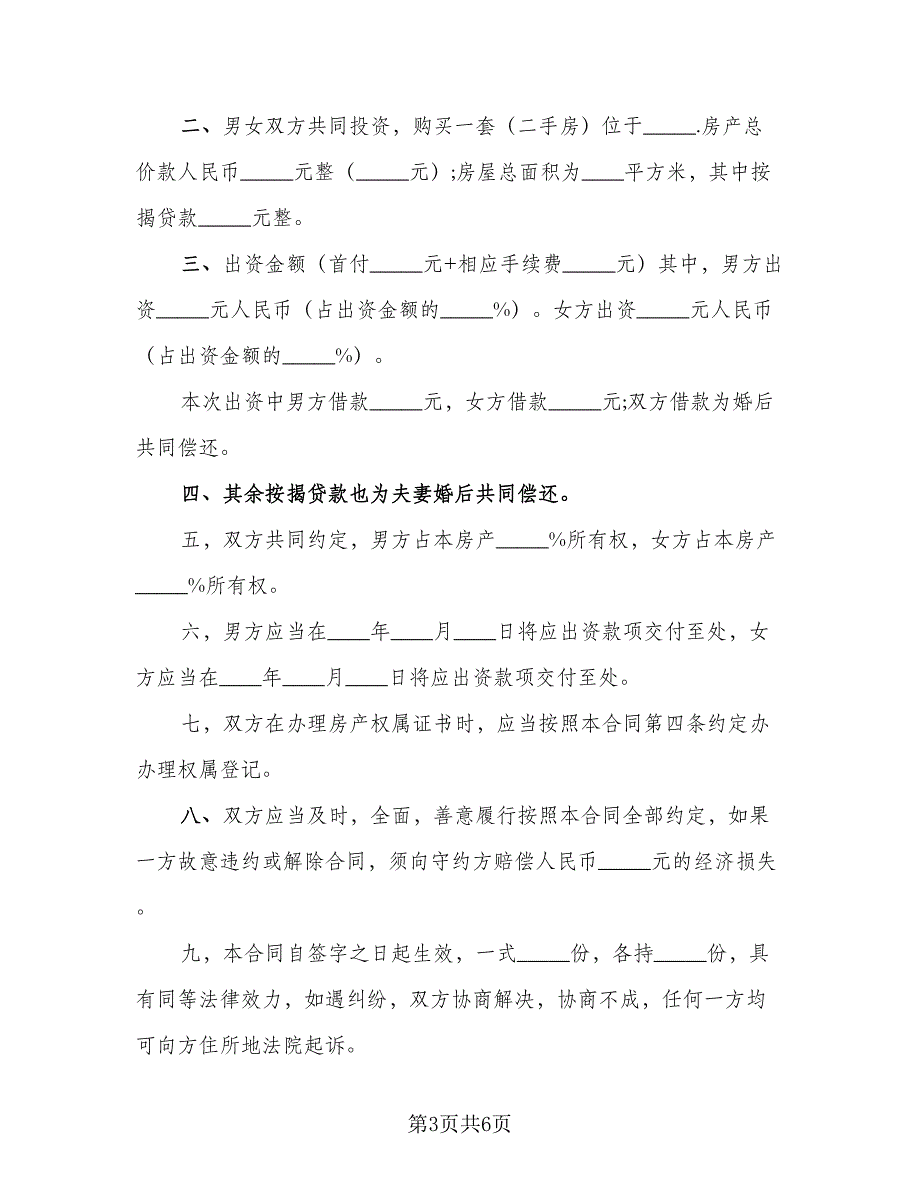 二、男女双方共同投资，购买一套（二手房）位于_____.房产总
价款人民币_____元整（_____元）;房屋总面积为____平方米，其中按
揭贷款_____元整。
三、出资金额（首付_____元+相应手续费_____元）其中，男方出
资_____元人民币（占出资金额的_____%）。女方出资_____元人民币
（占出资金额的_____%）。
本次出资中男方借款_____元，女方借款_____元;双方借款为婚后
共同偿还。
四、其余按揭贷款也为夫妻婚后共同偿还。
五，双方共同约定，男方占本房产_____%所有权，女方占本房产
_____%所有权。
六，男方应当在____年____月____日将应出资款项交付至处，女
方应当在____年____月____日将应出资款项交付至处。
七，双方在办理房产权属证书时，应当按照本合同第四条约定办
办理权属登记。
八、双方应当及时，全面，善意履行按照本合同全部约定，如果
一方故意违约或解除合同，须向守约方赔偿人民币_____元的经济损失
。
九，本合同自签字之日起生效，一式_____份，各持_____份，具
有同等法律效力，如遇纠纷，双方协商解决，协商不成，任何一方均
可向方住所地法院起诉。
第3页共6页